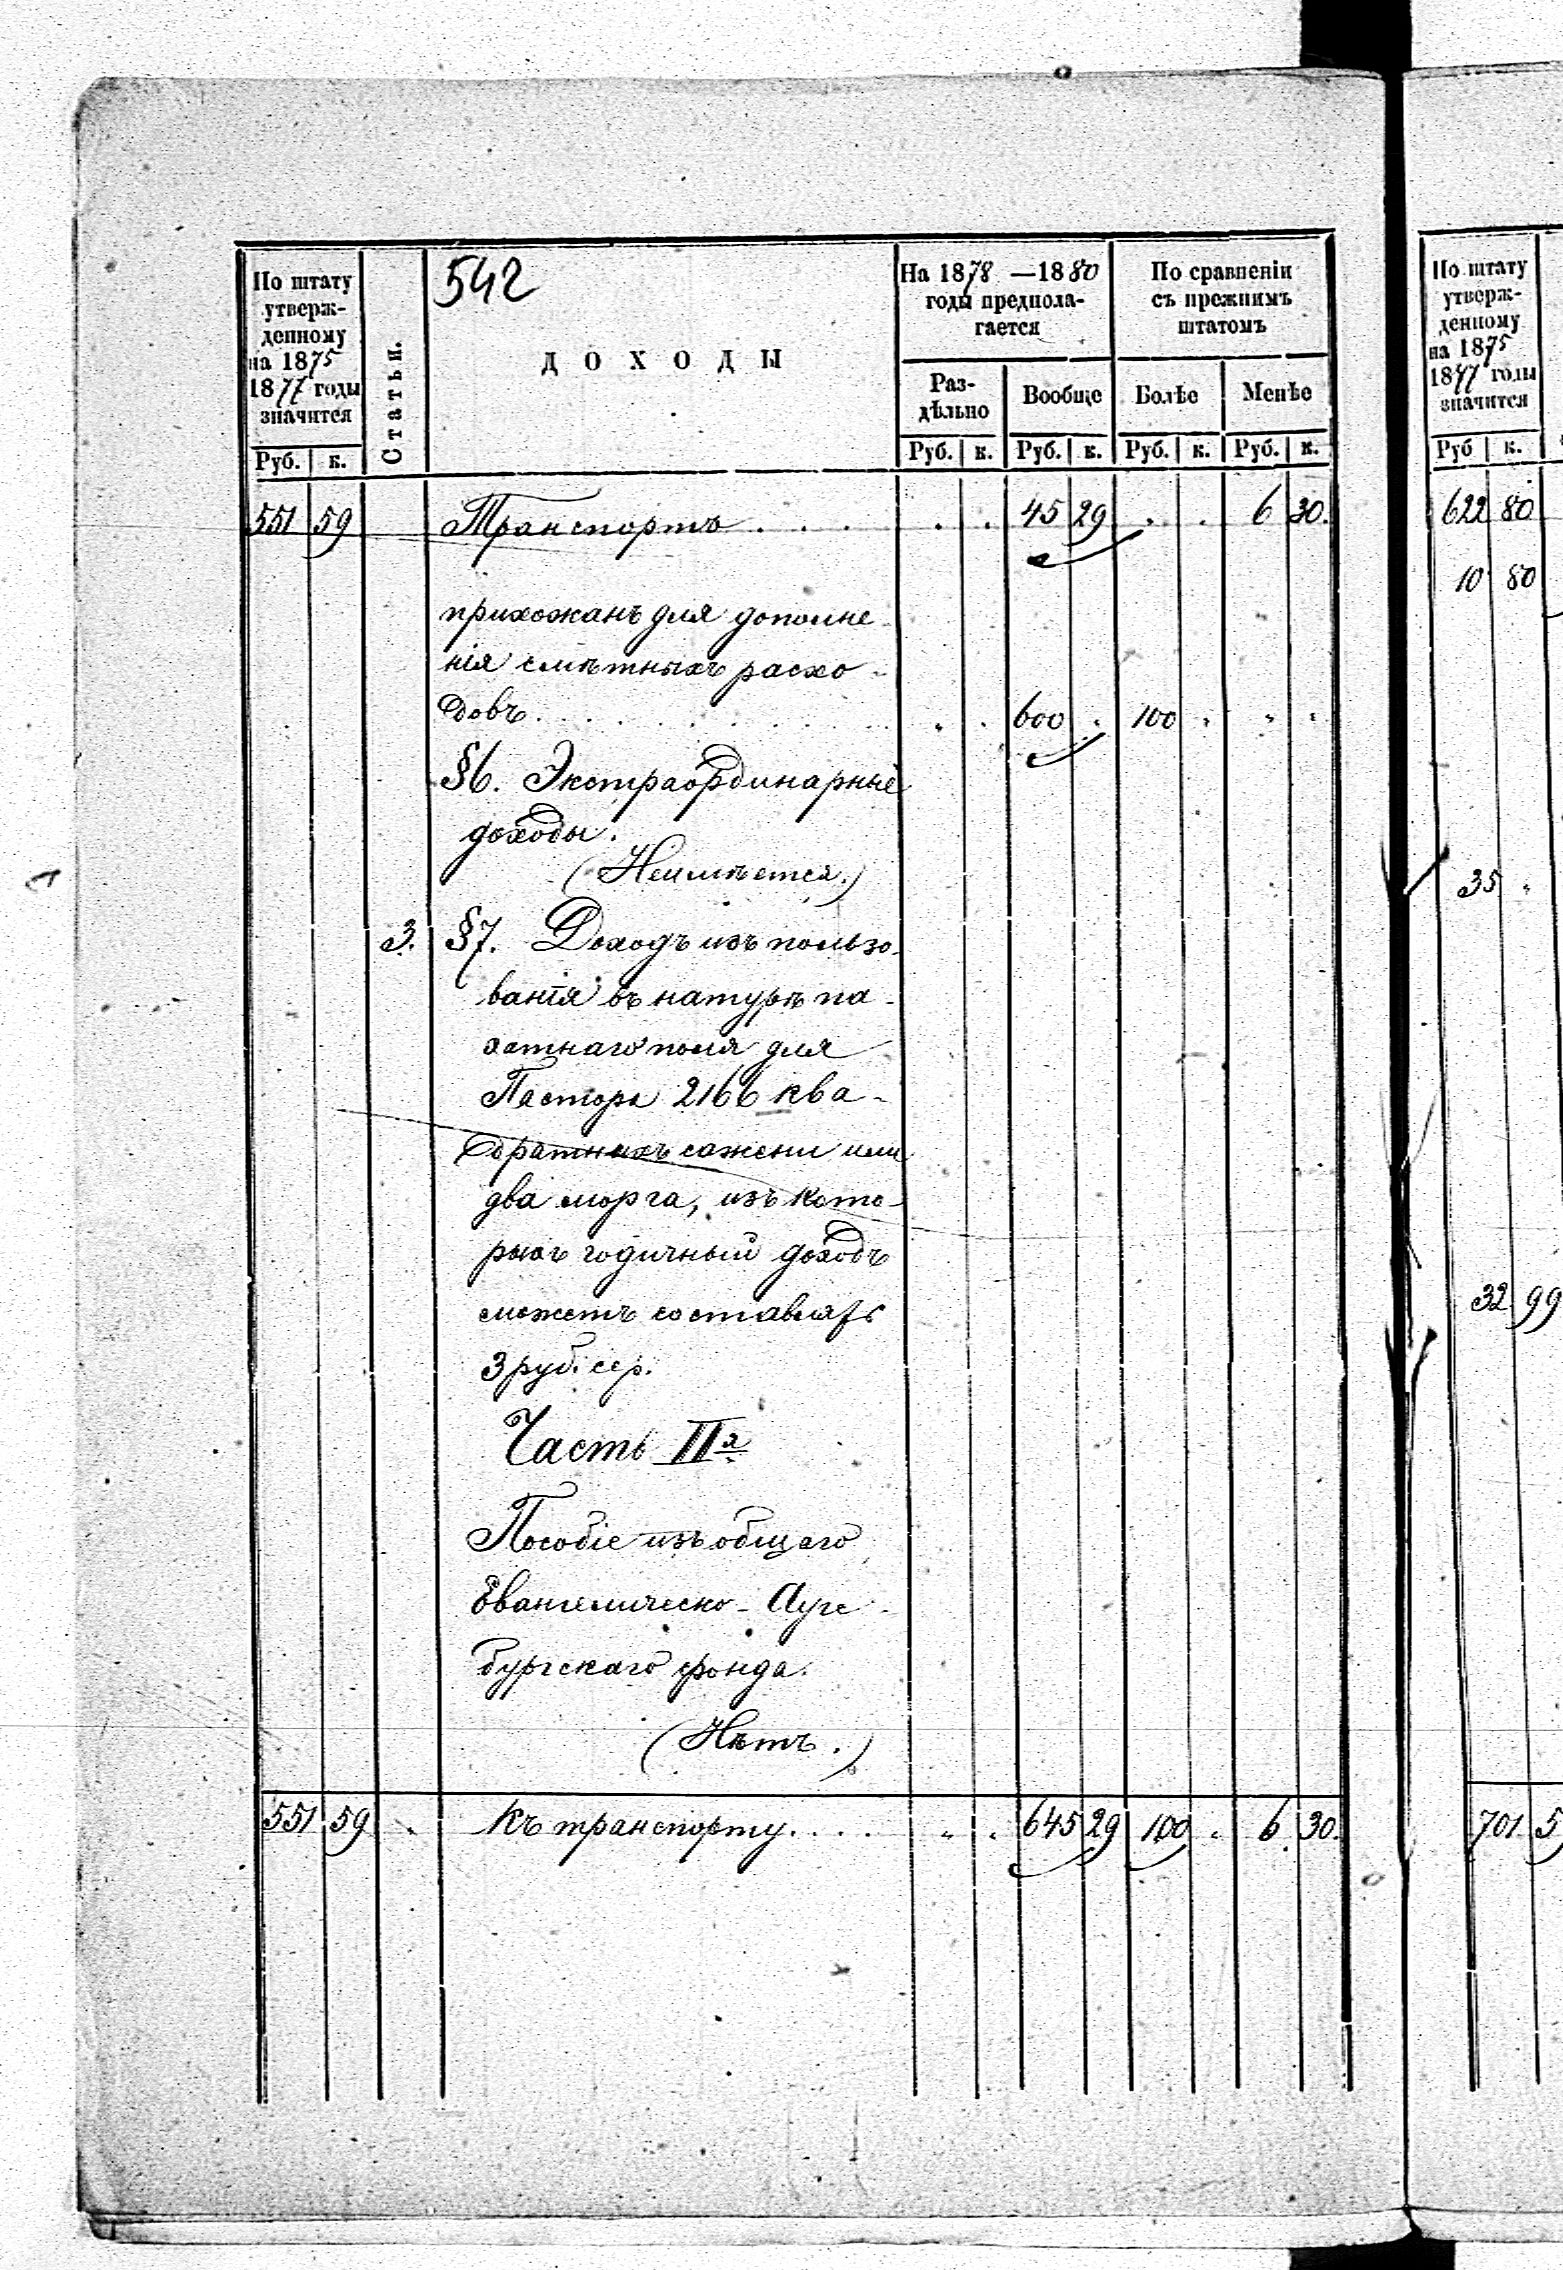 542
По штату
утверж-
денному
на 1875
1877 годы
значится
Руб. к.
Статьи.
ДОХОДЫ
На 1878 —1880
годы предпола-
гается
Раз-
дѣльно
Вообще
Руб. к. Руб. к.
По сравненіи
съ прежнимъ
штатомъ
Болѣе
Менѣе
Руб. к. Руб. к.
551 59 Транспортъ . . . . . . 45 29 . . 6 30.
прихожанъ для дополне-
нія смѣтныхъ расхо-
довъ. . . . . . . . . 600 . 100 . . .
§6. Экстраординарные
доходы.
(Неимѣется.)
3. §7. Доходъ изъ пользо-
ванія въ натурѣ па-
хотнаго поля для
Пастора 2166 ква-
дратныхъ сажени или
два морга, изъ кото-
рыхъ годичный доходъ
можетъ составлять
3 руб. сер.
Часть IIя
Пособіе изъ общаго
Евангелическо-Аугс-
бургскаго фонда.
(Нѣтъ.)
551 59 . Къ транспорту. . . . . . 645 29 100 . 6 30.
По штату
утверж-
денному
на 1875
1877 годы
значится
Руб к.
622 80
10 80
35 .
32 99
701 5